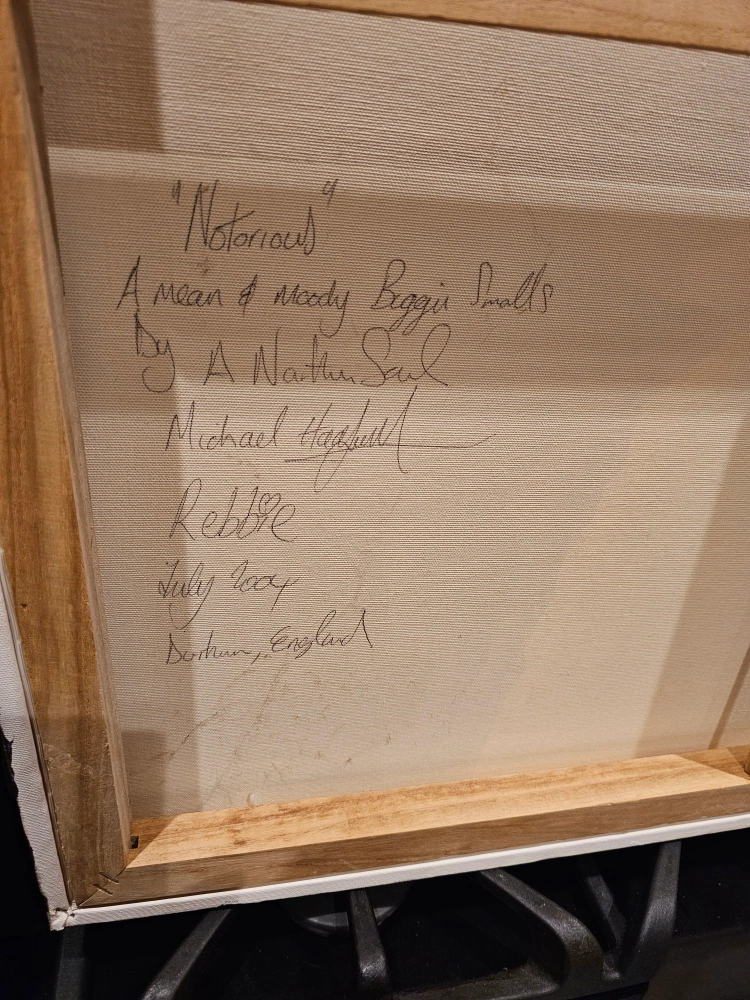 "Notorious"
A mean & moody Biggie Smalls
By A Northern Soul
Michael
Rebbie
July 2004
Durham, England